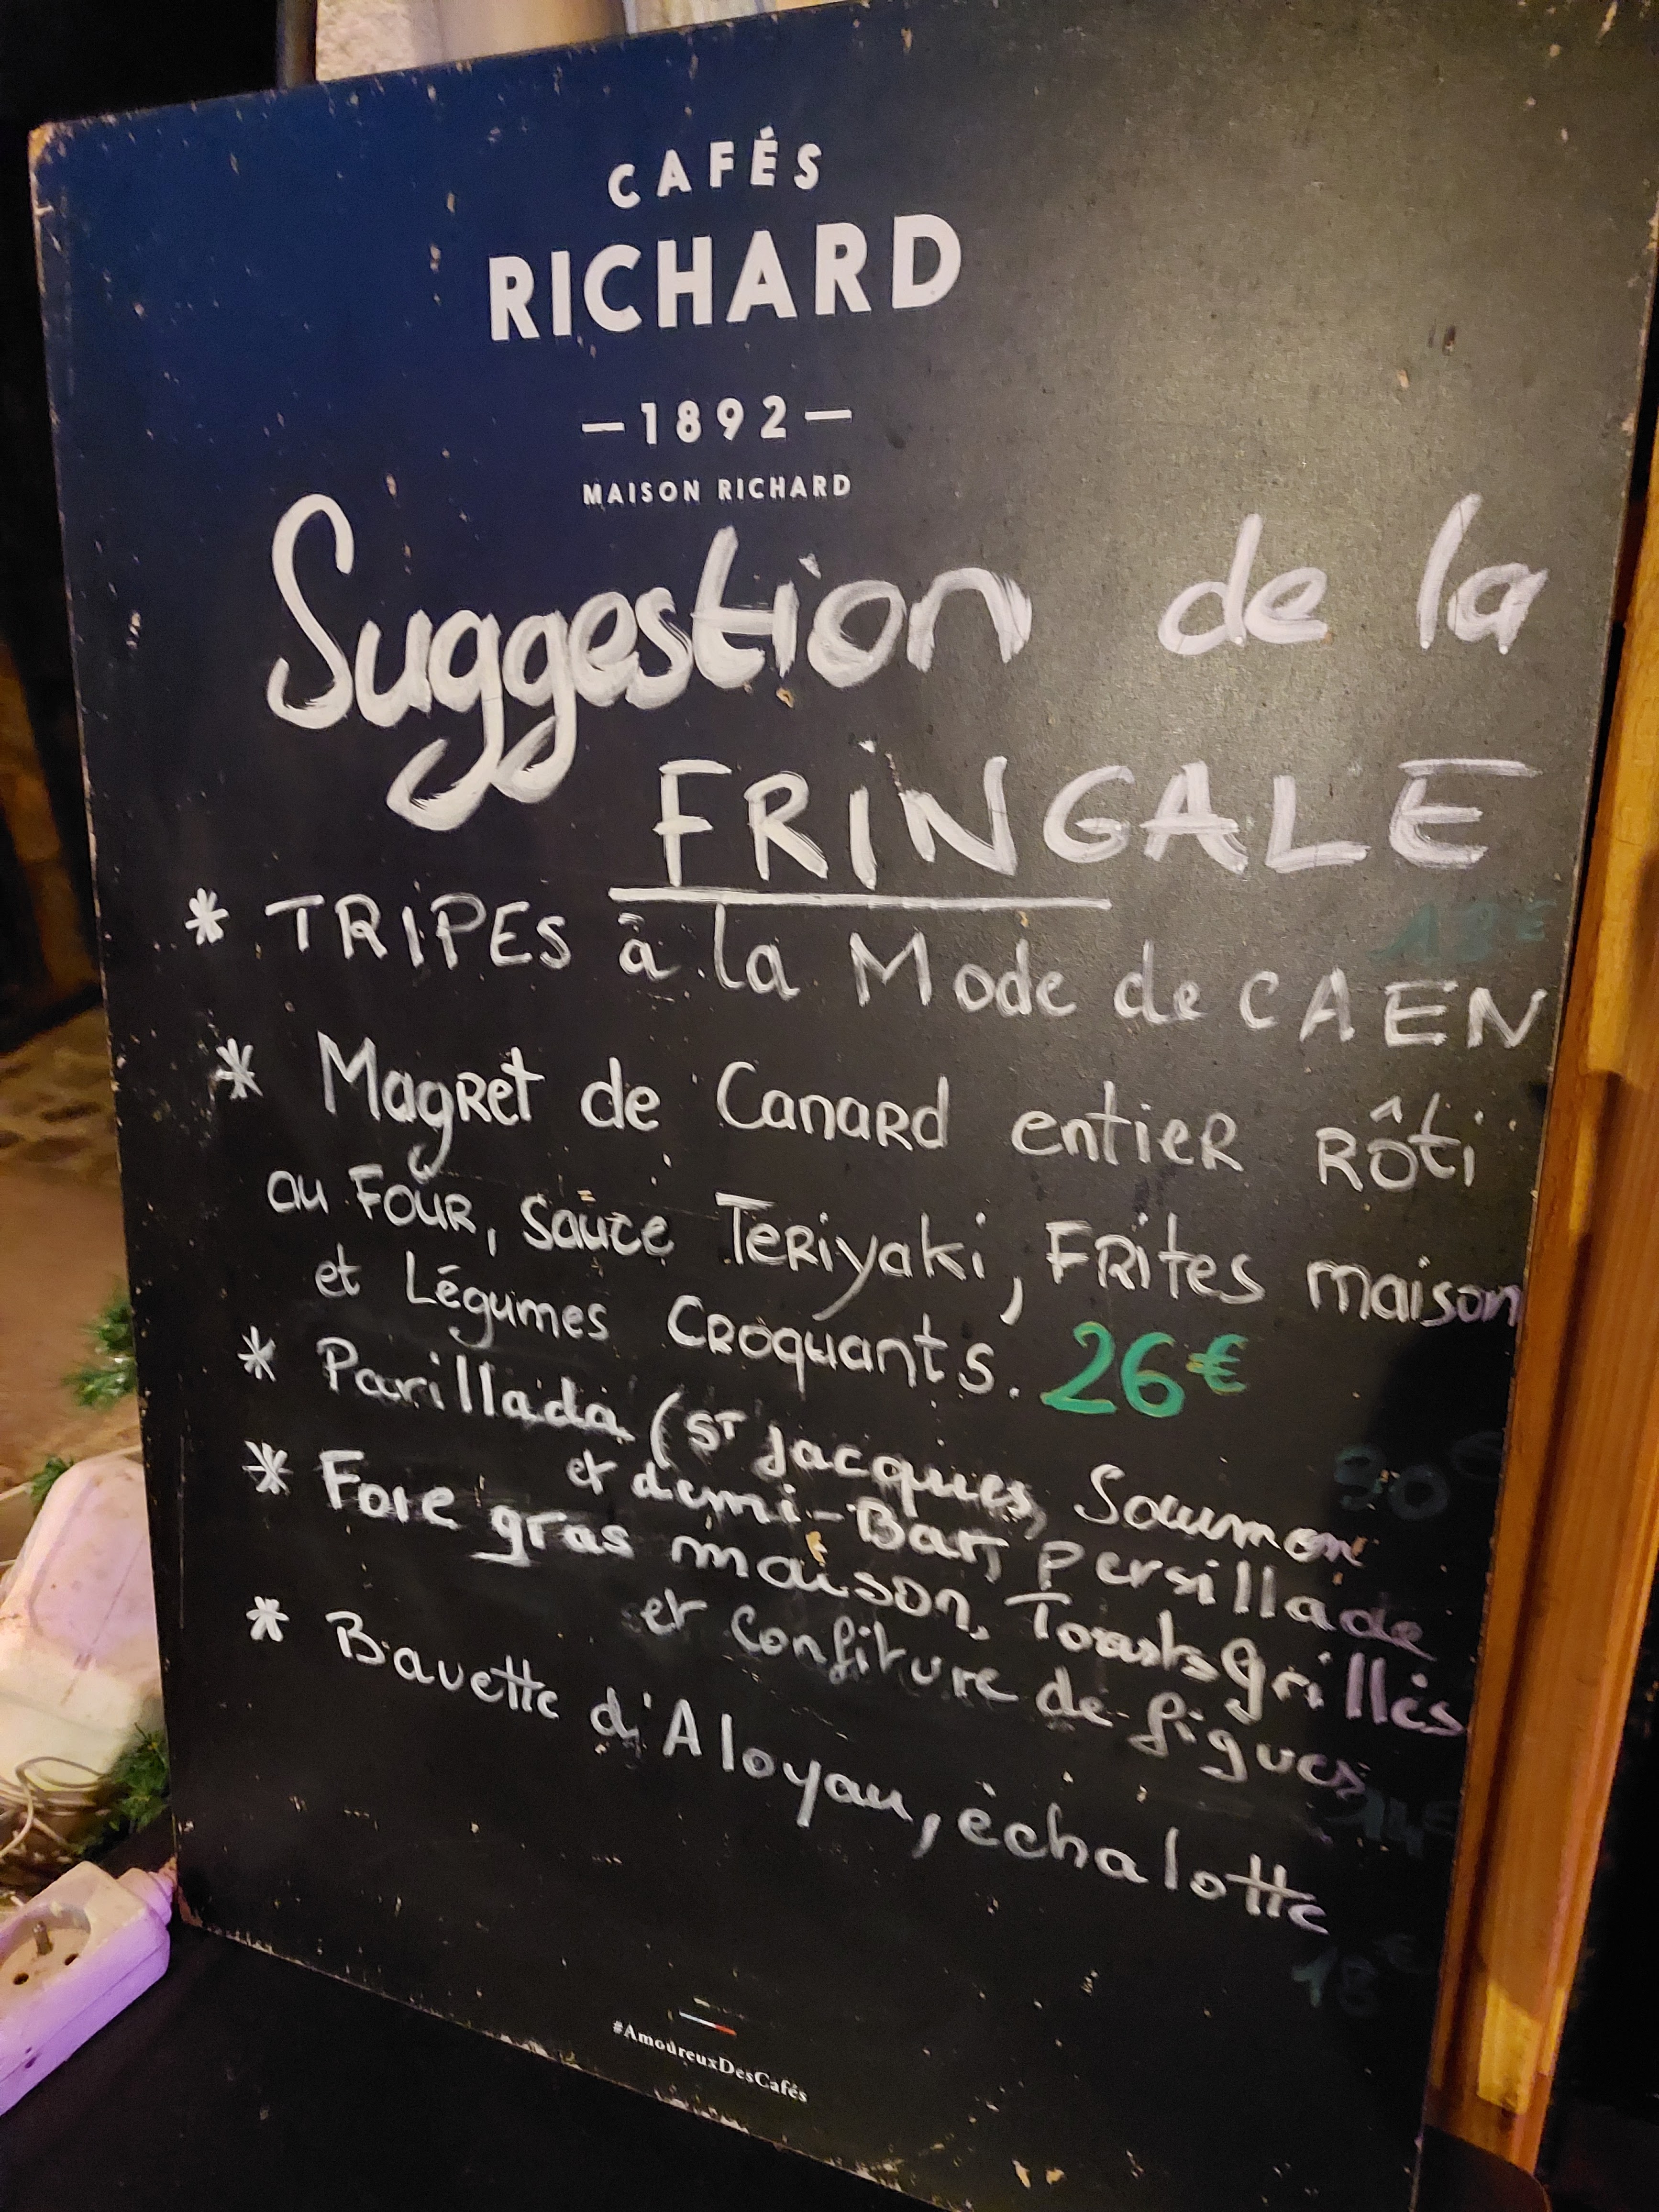 CAFÉS
RICHARD
—1892—
MAISON RICHARD
Suggestion de la
FRINGALE
* TRIPES à la Mode de CAEN
* Magret de Canard entier Rôti
au Four, Sauce Teriyaki, Frites maison
et Légumes Croquants. 26€
* Parillada (St Jacques, Saumon
et demi-Bar, persillade
* Foie gras maison, Toasts grillés
et Confiture de figues
* Bavette d'Aloyau, échalotte
18€
#AmoureuxDesCafés